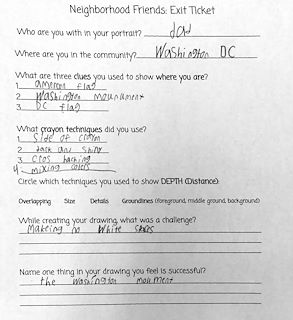 Neighborhood Friends: Exit Ticket
Who are you with in your portrait? dad
Where are you in the community? Washington DC
What are three clues you used to show where you are?
1. amrican flag
2. Washington mounument
3. DC flag
What crayon techniques did you use?
1. Side of crayon
2. dark and shiny
3. cros haching
4. mixing colors
Circle which techniques you used to show DEPTH (Distance):
Overlapping Size Details Groundlines (foreground, middle ground, background)
While creating your drawing, what was a challenge?
Makeing no White
Name one thing in your drawing you feel is successful?
the Washington moument